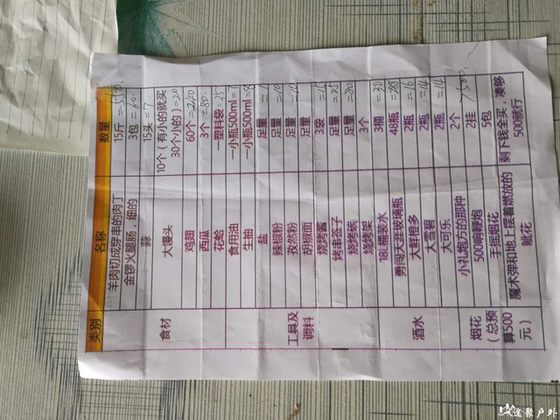 类别 名称 数量
食材
羊肉切成穿串的肉丁 15斤
金锣火腿肠，细的 3包
蒜 15头 =7
大馒头 10个（有小的就买30个小的）
鸡翅 60个
西瓜 3个
花蛤 一塑料袋
工具及调料
食用油 一小瓶500ml
生抽 一小瓶500ml
盐 足量
辣椒粉 足量
孜然粉 足量
胡椒面 足量
烧烤酱 3袋
烤串签子 足量
烧烤炭 足量
烧烤架 3个
酒水
18L桶装水 3桶
勇闯天涯玻璃瓶 48瓶
大鲜橙多 2瓶
大雪碧 2瓶
大可乐 2瓶
烟花（总预算500元）
小礼炮方的那种 2个
500响鞭炮 2挂
手摇烟花 5包
魔术弹和地上摆着燃放的呲花 剩下钱全买，凑够500就行
道聚户外